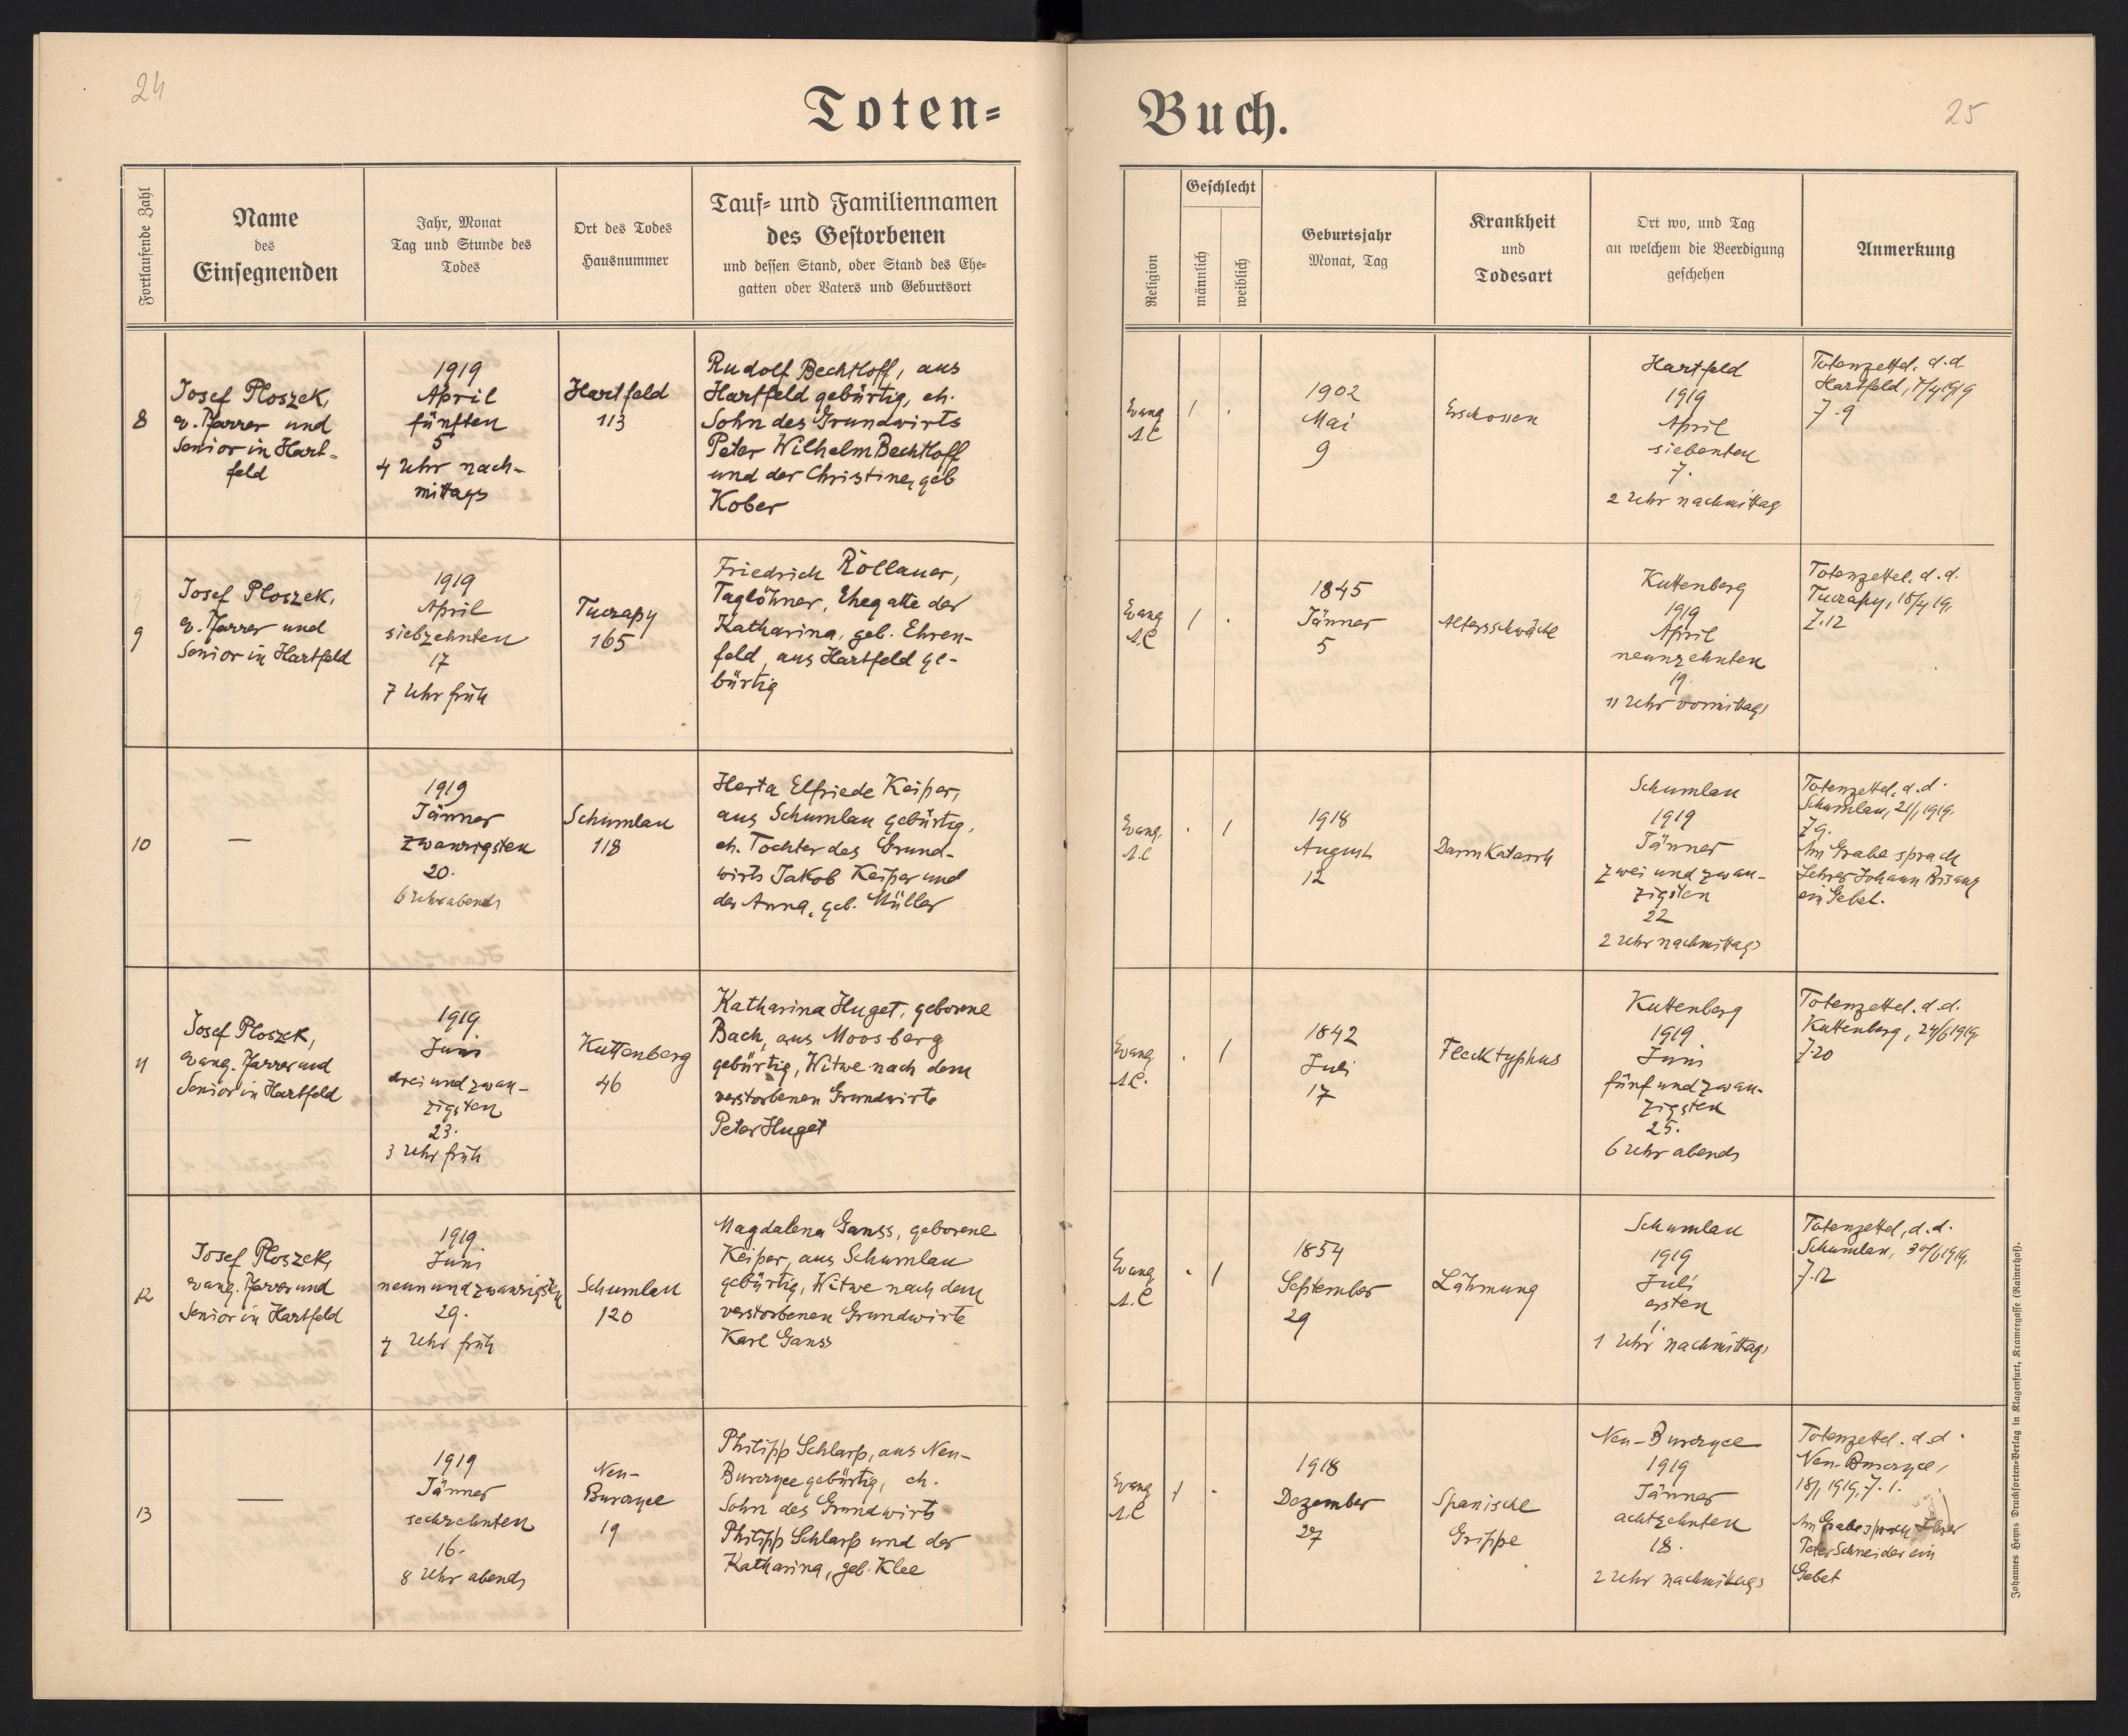 24
Toten=
Buch.
25
Fortlaufende Zahl
Name
des
Einsegnenden
Jahr, Monat
Tag und Stunde des
Todes
Ort des Todes
Hausnummer
Tauf= und Familiennamen
des Gestorbenen
und dessen Stand, oder Stand des Ehe=
gatten oder Vaters und Geburtsort
Religion
Geschlecht
männlich
weiblich
Geburtsjahr
Monat, Tag
Krankheit
und
Todesart
Ort wo, und Tag
an welchem die Beerdigung
geschehen
Anmerkung
8
Josef Ploszek,
ev. Pfarrer und
Senior in Hart-
feld
1919
April
fünften
5
4 Uhr nach-
mittags
Hartfeld
113
Rudolf Bechtloff, aus
Hartfeld gebürtig, eh.
Sohn des Grundwirts
Peter Wilhelm Bechtloff
und der Christine, geb
Kober
Evang
A.C
1
.
1902
Mai
9
Erschossen
Hartfeld
1919
April
siebenten
7.
2 Uhr nachmittag
Totenzettel. d.d
Hartfeld, 7/4 1919
Z.9
9
9
Josef Ploszek,
ev. Pfarrer und
Senior in Hartfeld
1919
April
siebzehnten
17
7 Uhr früh
Tucrapy
165
Friedrich Röllauer,
Taglöhner, Ehegatte der
Katharina, geb. Ehren-
feld, aus Hartfeld ge-
bürtig
Evang
A.C
1
.
1845
Jänner
5
Altersschwäche
Kuttenberg
1919
April
neunzehnten
19.
11 Uhr vormittags
Totenzettel. d.d.
Tucrapy, 18/4 19,
Z.12
10
—
1919
Jänner
zwanzigsten
20.
6 Uhr abends
Schumlau
118
Herta Elfriede Keiper,
aus Schumlau gebürtig,
eh. Tochter des Grund-
wirts Jakob Keiper und
der Anna, geb. Müller
Evang.
A.C
.
1
1918
August
12
Darmkatarrh
Schumlau
1919
Jänner
zwei und zwan-
zigsten
22
2 Uhr nachmittags
Totenzettel. d.d.
Schumlau, 21/1 1919.
Z9.
Am Grabe sprach
Lehrer Johann Bisanz
ein Gebet.
11
Josef Ploszek,
evang. Pfarrer und
Senior in Hartfeld
1919
Juni
drei und zwan-
zigsten
23.
3 Uhr früh
Kuttenberg
46
Katharina Huget, geborene
Bach, aus Moosberg
gebürtig, Witwe nach dem
verstorbenen Grundwirte
Peter Huget
Evang
A.C.
.
1
1842
Juli
17
Flecktyphus
Kuttenberg
1919
Juni
fünf und zwan-
zigsten
25.
6 Uhr abends
Totenzettel. d.d.
Kuttenberg, 24/6 1919,
Z.20
12
Josef Ploszek,
evang. Pfarrer und
Senior in Hartfeld
1919
Juni
neun und zwanzigsten
29.
4 Uhr früh
Schumlau
120
Magdalena Ganss, geborene
Keiper, aus Schumlau
gebürtig, Witwe nach dem
verstorbenen Grundwirte
Karl Ganss
Evang
A.C
.
1
1854
September
29
Lähmung
Schumlau
1919
Juli
ersten
1.
1 Uhr nachmittags
Totenzettel, d.d.
Schumlau, 30/6 1919,
Z.12
13
—
1919
Jänner
sechzehnten
16.
8 Uhr abends
Neu-
Burczyce
19
Philipp Schlarp, aus Neu-
Burczyce gebürtig, eh.
Sohn des Grundwirts
Philipp Schlarp und der
Katharina, geb. Klee
Evang
A.C
1
.
1918
Dezember
27
Spanische
Grippe
Neu-Burczyce
1919
Jänner
achtzehnten
18.
2 Uhr nachmittags
Totenzettel. d.d.
Neu-Burczyce,
18/1 1919, Z. 1.
Am Grabe sprach Lehrer
Peter Schneider ein
Gebet
Johannes Heyns Drucksorten-Verlag in Klagenfurt, Kramergasse (Rainerhof).